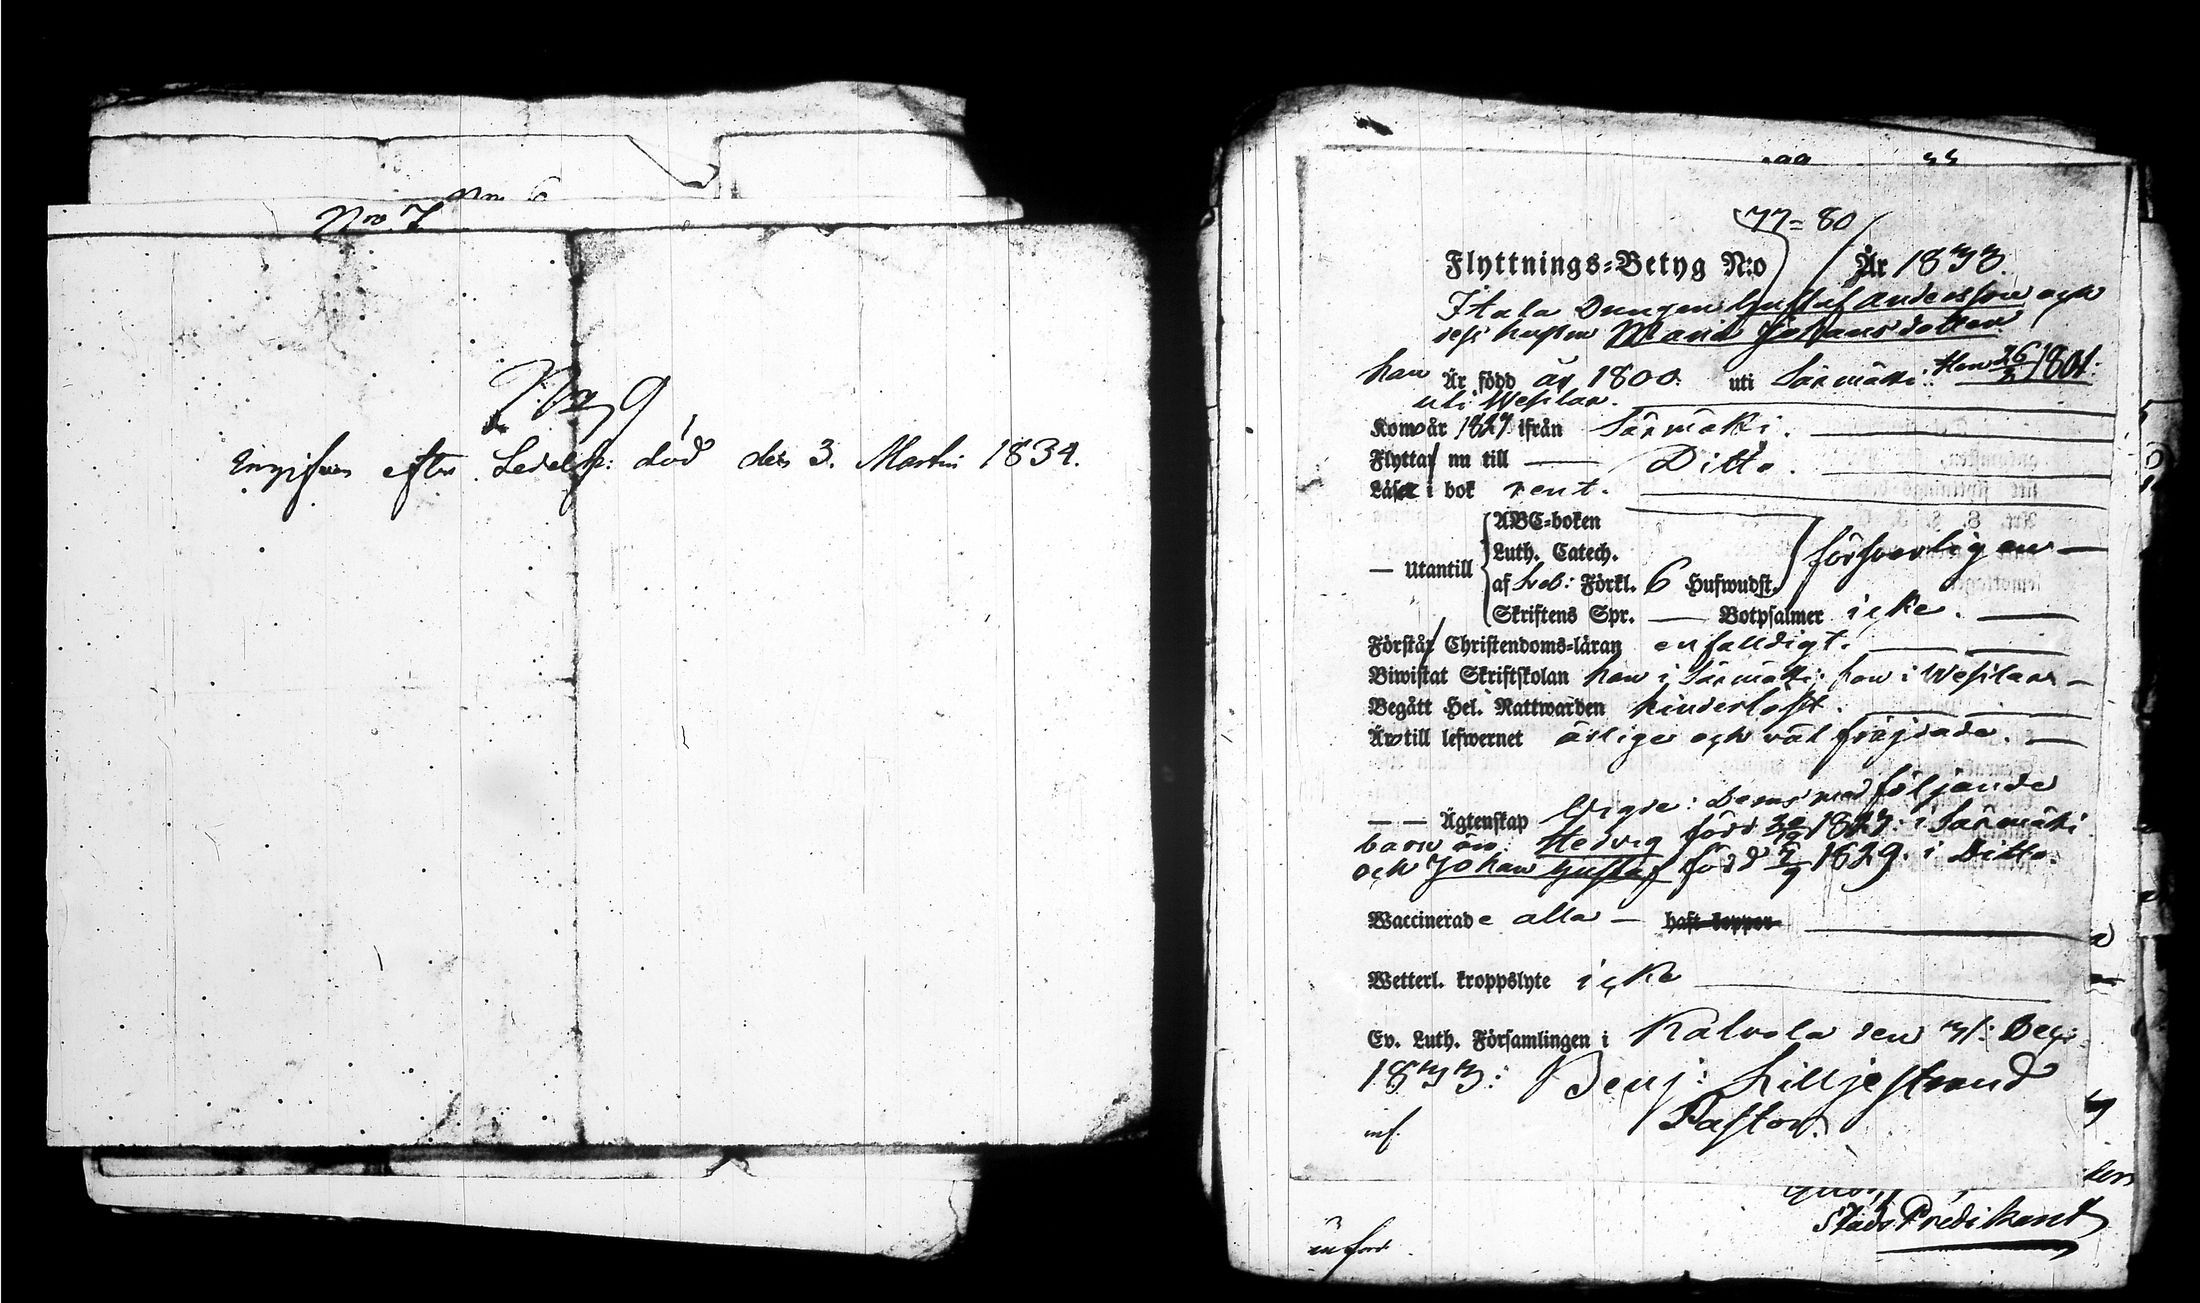 No. 6
No. 7
No. 9
efter död den 3. Martii 1834.
77=80
Flyttnings=Betyg N:o År 1833.
Itala Drängen Gustaf Andersson och
dess hustru Maria Johansdotter
han Är född år 1800. uti Säxmäki: Hon 26/2 1801.
uti Wesilax.
Kom år 1827 ifrån Säxmäki.
Flyttar nu till Ditto.
Läser i bok rent.
ABC=boken
Luth. Catech.
— Utantill
af Sveb: Förkl. 6 Hufwudst. försvarligen —
Skriftens Spr. — Botpsalmer icke.
Förstår Christendoms=läran enfalldigt.
Biwistat Skriftskolan han i Säxmäki: hon i Wesilax —
Begått Hel. Nattwarden hinderlöst.
Äro till lefwernet ärlige och väl frejdade. —
— — Ägtenskap Vigde: Deras medföljande
barn äro: Hedvig född 1827: i Säxmäki
och Johan Gustaf född 1829. i Ditto.
Waccinerade alla — haft koppor
Wetterl. kroppslyte icke
Ev. Luth. Församlingen i Kalvola den 31: Dec:
1833: Benj: Lilljestrand
inf. Pastor.
Stads Predikant